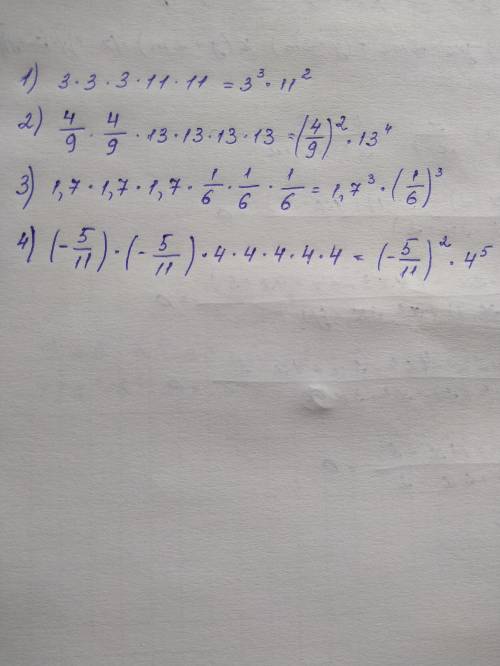 1) 3·3·3·11·11 = 3³·11²
2) 4/9 · 4/9 · 13·13·13·13 = (4/9)²·13⁴
3) 1,7·1,7·1,7· 1/6 · 1/6 · 1/6 = 1,7³·(1/6)³
4) (-5/11)·(-5/11)·4·4·4·4·4 = (-5/11)²·4⁵